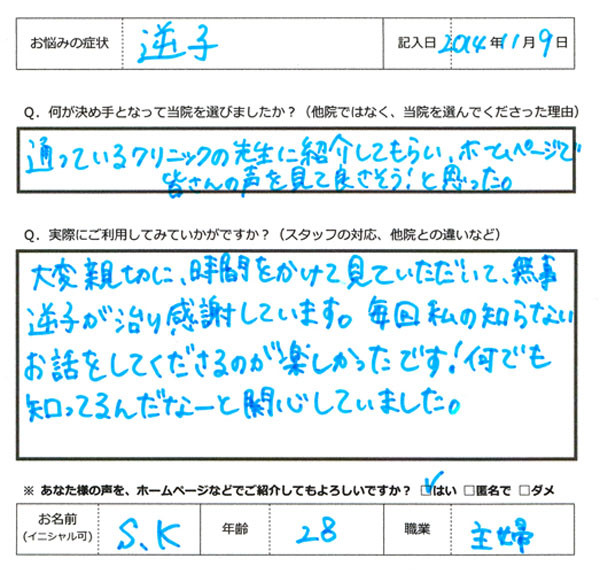 お悩みの症状 逆子 記入日 2014年11月9日
Q．何が決め手となって当院を選びましたか？（他院ではなく、当院を選んでくださった理由）
通っているクリニックの先生に紹介してもらい、ホームページで
皆さんの声を見て良さそう！と思った。
Q．実際にご利用してみていかがですか？（スタッフの対応、他院との違いなど）
大変親切に、時間をかけて見ていただいて、無事
逆子が治り感謝しています。毎回私の知らない
お話をしてくださるのが楽しかったです！何でも
知ってるんだなーと関心していました。
※ あなた様の声を、ホームページなどでご紹介してもよろしいですか？ ☑はい □匿名で □ダメ
お名前 (イニシャル可) S、K 年齢 28 職業 主婦